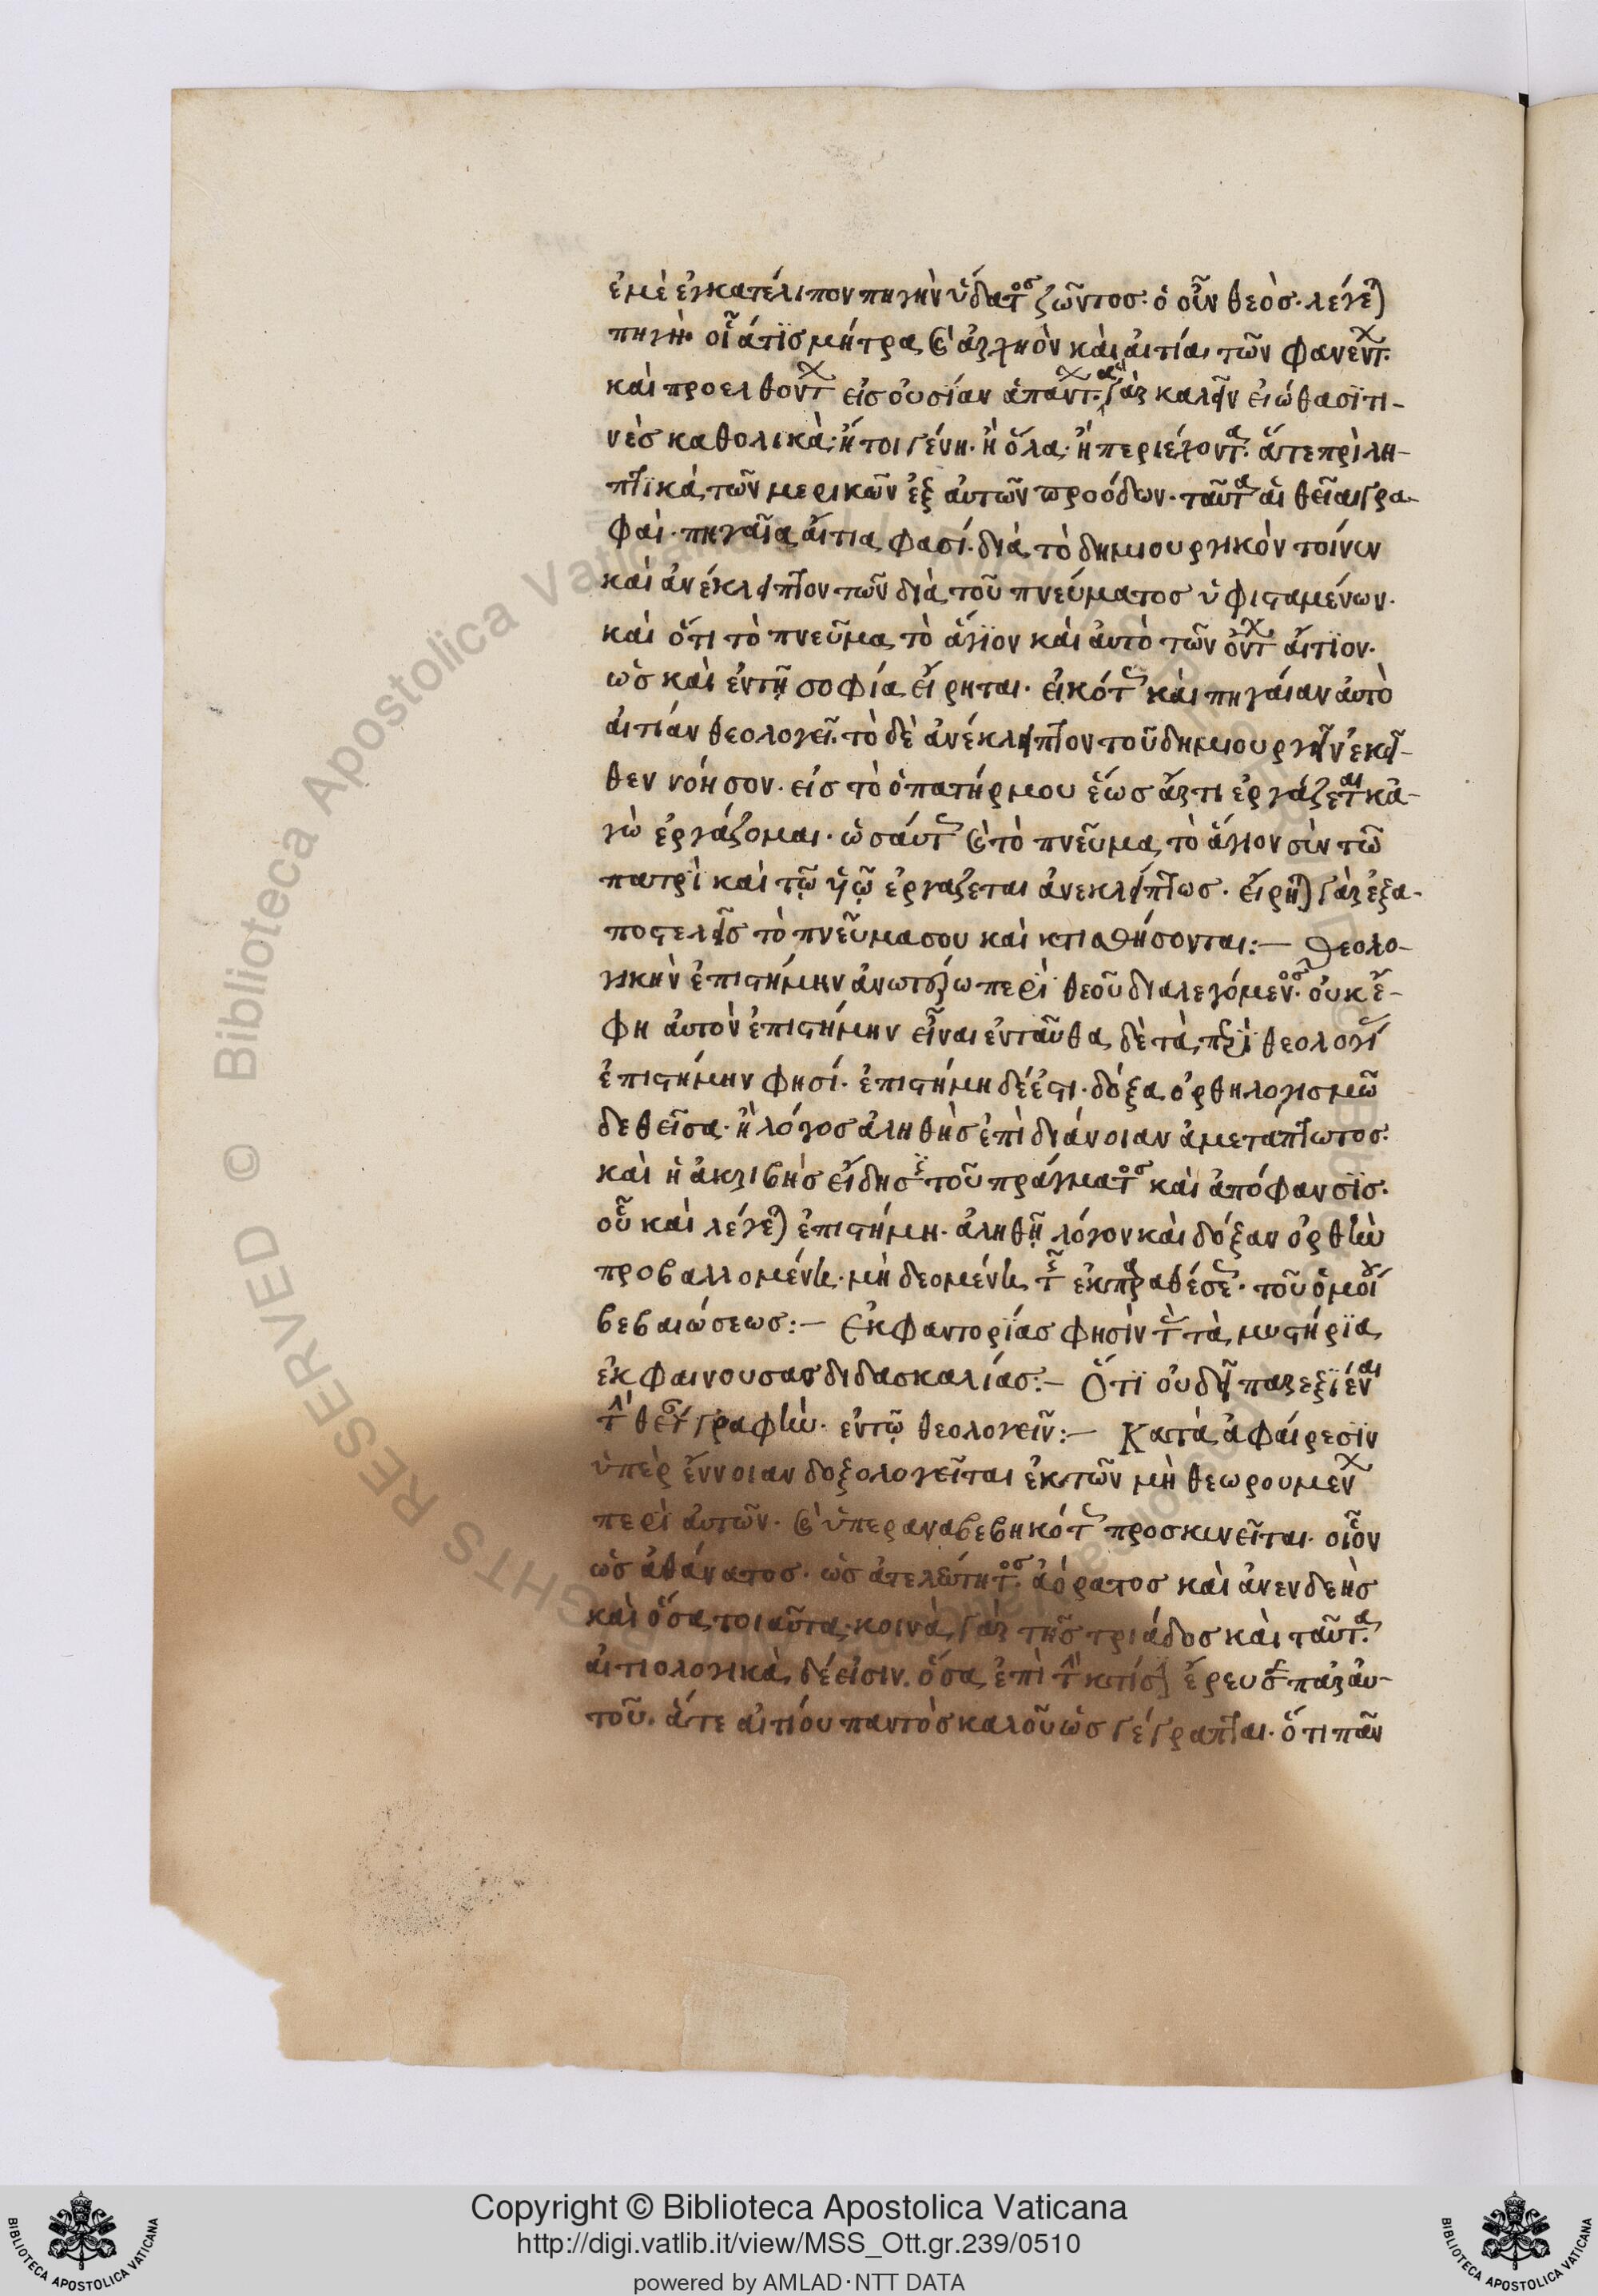 ἐμὲ ἐγκατέλιπον πηγὴν ὕδατος ζῶντος· ὁ οὖν θεὸς· λέγεται
πηγὴ· οἷάτϊς μήτρα καὶ ἀρχηὸν καὶ αἰτία, τῶν φανέντων·
καὶ προελθόντων εἰς οὐσίαν ἁπάντων· ἃ γὰρ καλεῖν εἰώθασϊ τι-
νὲς καθολικὰ· ἤτοι γένη· ἢ ὅλα· ἢ περιέχοντα· ἅτε πρὶλη-
πτϊκά, τῶν μερικῶν ἐξ αὐτῶν προόδων· ταῦτα αἱ θεῖαι γρα-
φαὶ· πηγαῖα, αἴτια, φασί· διὰ τὸ δημιουργικὸν τοίνυν
καὶ ἀνέκλειπτον τῶν διὰ τοῦ πνεύματος ὑφισταμένων·
καὶ ὅτι τὸ πνεῦμα, τὸ ἅγϊον καὶ αὐτὸ τῶν ὄντων αἴτϊον·
ὡς καὶ ἐν τῇ σοφία, εἴρηται· εἰκότως καὶ πηγαίαν αὐτὸ
αἰτίαν θεολογεῖ· τὸ δὲ ἀνέκλειπτον τοῦ δημιουργεῖν ἐκεῖ-
θεν νόησον· εἰς τὸ ὁ πατήρ μου ἕως ἄρτι ἐργάζεται κἀ-
γὼ ἐργάζομαι· ὡσαύτως καὶ τὸ πνεῦμα, τὸ ἅγιον σὺν τῶ
πατρὶ καὶ τῷ υἱῷ ἐργάζεται ἀνεκλείπτως· εἴρηται γὰρ ἐξα-
ποστελεῖς τὸ πνεῦμα σου καὶ κτισθήσονται:— Θεολο-
γικὴν ἐπιστήμην ἀνωτέρω περὶ θεοῦ διαλεγόμενος· οὐκ ἔ-
φη αὐτὸν ἐπιστήμην εἶναι ἐνταῦθα, δὲ τὰ, περὶ θεολογίας
ἐπιστήμην φησί· ἐπιστήμη δέ ἐστι· δόξα, ὀρθη λογισμῶ
δεθεῖσα· ἢ λόγος ἀληθὴς ἐπὶ διάνοιαν ἀμεταπτωτος·
καὶ ἡ ἀκριβὴς εἴδησϊς τοῦ πράγματος καὶ ἀπόφανσϊς·
οὗ καὶ λέγεται ἐπιστήμη· ἀληθῆ λόγον καὶ δόξαν ὀρθὴν
προβαλλομένη· μὴ δεομένη τῆς ἐκ παραθέσεως· τοῦ ὁμοίου
βεβαιώσεως:— Ἐκφαντορίας φησὶν τὰς τὰ, μυστήρϊα,
ἐκφαινουσας διδασκαλίας:— Ὅτϊ οὐ δεῖ παρεξϊέναι
τὴν θείαν γραφὴν· ἐν τῷ θεολογεῖν:— Κατὰ, ἀφαίρεσϊν
ὑπὲρ ἔννοιαν δοξολογεῖται ἐκ τῶν μὴ θεωρουμενων
περὶ αὐτῶν· καὶ ὑπεραναβεβηκότως προσκυνεῖται· οἷον
ὡς ἀθάνατος· ὡς ἀτελεύτητος· ἀόρατος καὶ ἀνενδεὴς
καὶ ὅσα, τοιαῦτα· κοινὰ, γὰρ τῆς τριάδος καὶ ταῦτα·
αἰτιολογικὰ, δέ εἰσιν· ὅσα, ἐπὶ τὴν κτίσιν ἔρευσε παρ αὐ-
τοῦ· ἅτε αἰτίου παντὸς καλοῦ ὡς γέγραπται· ὅτι πᾶν
Copyright © Biblioteca Apostolica Vaticana
http://digi.vatlib.it/view/MSS_Ott.gr.239/0510
powered by AMLAD·NTT DATA